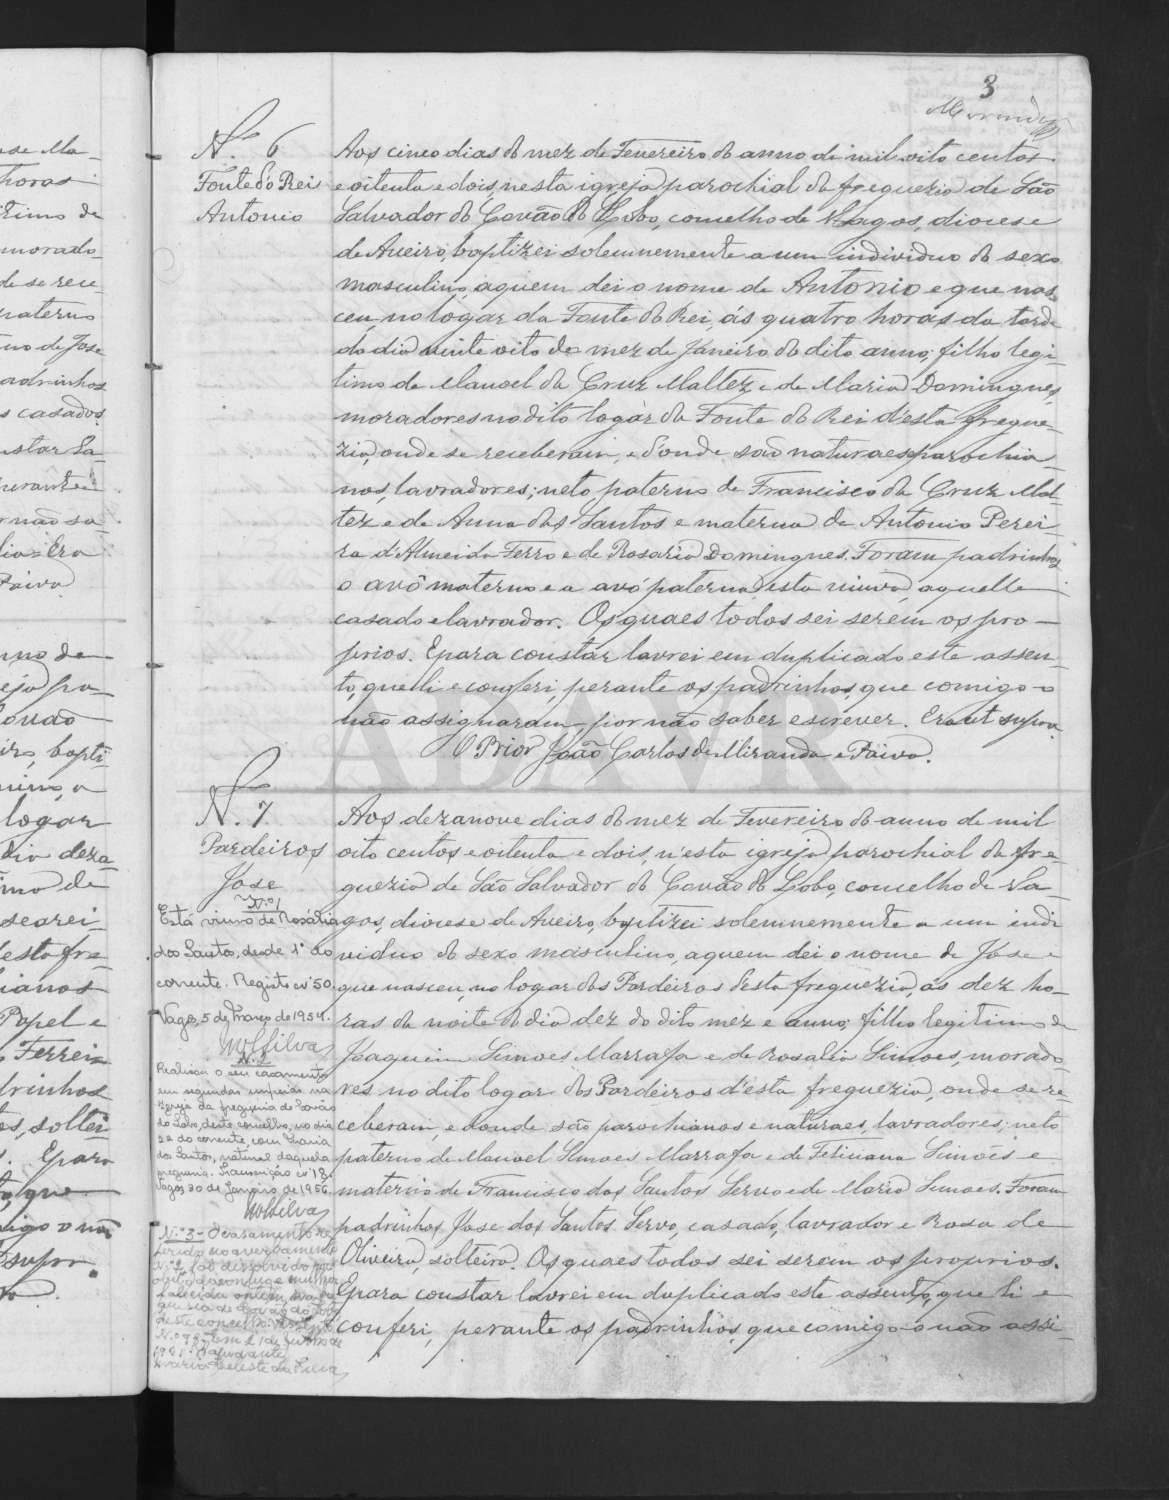 3
Miranda
N.º 6
Fonte do Rei
Antonio
Aos cinco dias do mez de Fevereiro do anno de mil oito centos
e oitenta e dois, nesta igreja parochial da freguezia de São
Salvador do Covão do Lobo, concelho de Vagos, diocese
de Aveiro, baptizei solemnemente a um individuo do sexo
masculino, aquem dei o nome de Antonio e que nas-
ceu, no logar da Fonte do Rei, ás quatro horas da tarde
do dia vinte oito do mez de Janeiro do dito anno; filho legi-
timo de Manoel da Cruz Maltez e de Maria Domingues,
moradores no dito logar da Fonte do Rei d'esta fregue-
zia, onde se receberam, e d'onde são naturaes parochia-
nos, lavradores; neto paterno de Francisco da Cruz Mal-
tez e de Anna dos Santos e materno de Antonio Perei-
ra d'Almeida Ferro e de Rosaria Domingues. Foram padrinhos
o avô materno e a avó paterna, esta viuva, aquelle
casado e lavrador. Os quaes todos sei serem os pro-
prios. E para constar lavrei em duplicado este assen-
to, que li e conferi, perante os padrinhos, que comigo o
não assignaram, por não saber escrever. Era ut supra
O Prior João Carlos de Miranda e Paiva.
ADAVR
N.º 7
Pardeiros
Jose
Aos dezanove dias do mez de Fevereiro do anno de mil
oito centos e oitenta e dois, n'esta igreja parochial da fre-
guezia de São Salvador do Covão do Lobo, concelho de Va-
gos, diocese de Aveiro, baptizei solemnemente a um indi-
viduo do sexo masculino, aquem dei o nome de Jose e
que nasceu, no logar dos Pardeiros d'esta freguezia, ás dez ho-
ras da noite do dia dez do dito mez e anno; filho legitimo de
Joaquim Simoes Marrafa e de Rosalia Simoes, morado-
res no dito logar dos Pardeiros d'esta freguezia, onde se re-
ceberam, e donde são parochianos e naturaes, lavradores; neto
paterno de Manoel Simoes Marrafa e de Feliciana Simões e
materno de Francisco dos Santos Servo e de Maria Simoes. Foram
padrinhos Jose dos Santos Servo, casado, lavrador e Rosa de
Oliveira, solteira. Os quaes todos sei serem os proprios.
E para constar lavrei em duplicado este assento, que li e
conferi, perante os padrinhos, que comigo o não assi-
N.º 1
Está viuvo de Rosária
dos Santos, desde 1º do
corrente. Registo nº 50.
Vagos, 5 de Março de 1954.
N.º 2
Realizou o seu casamento
em segundas nupcias na
Igreja da freguesia de Covão
do Lobo, deste concelho, no dia
do corrente, com Maria
dos Santos, natural daquela
freguesia. Transcrição nº 18.
Vagos 30 de Janeiro de 1956.
N.º 3 - O casamento re-
ferido no averbamento
nº 2, foi dissolvido por
óbito da conjuge mulher
falecida ontem, na fre-
guesia de Covão do Lobo
deste concelho.
de Junho de
A ajudante
Maria Celeste da Silva